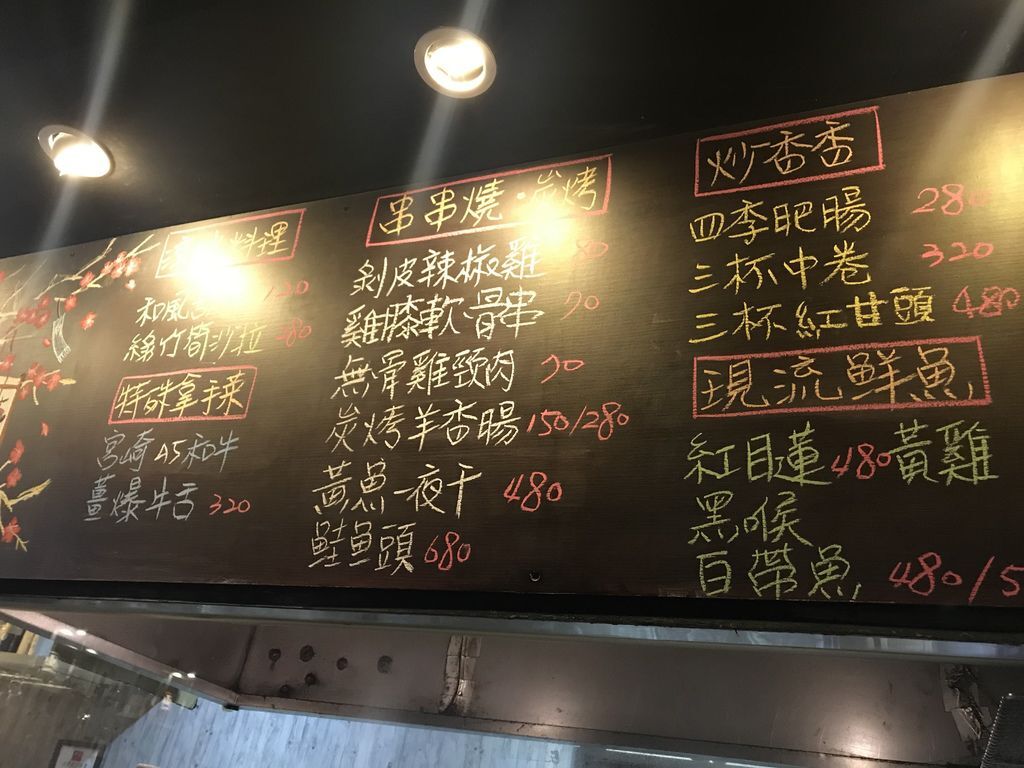 料理
和風 120
綠竹筍沙拉 80
特殊拿手菜
宮崎A5和牛
薑爆牛舌 320
串串燒·炭烤
剝皮辣椒雞 80
雞膝軟骨串 70
無骨雞頸肉 70
炭烤羊香腸 150/280
黃魚一夜干 480
鮭魚頭 680
炒香香
四季肥腸 280
三杯中卷 320
三杯紅甘頭 480
現流鮮魚
紅目蓮 480 黃雞
黑喉
白帶魚 480/5